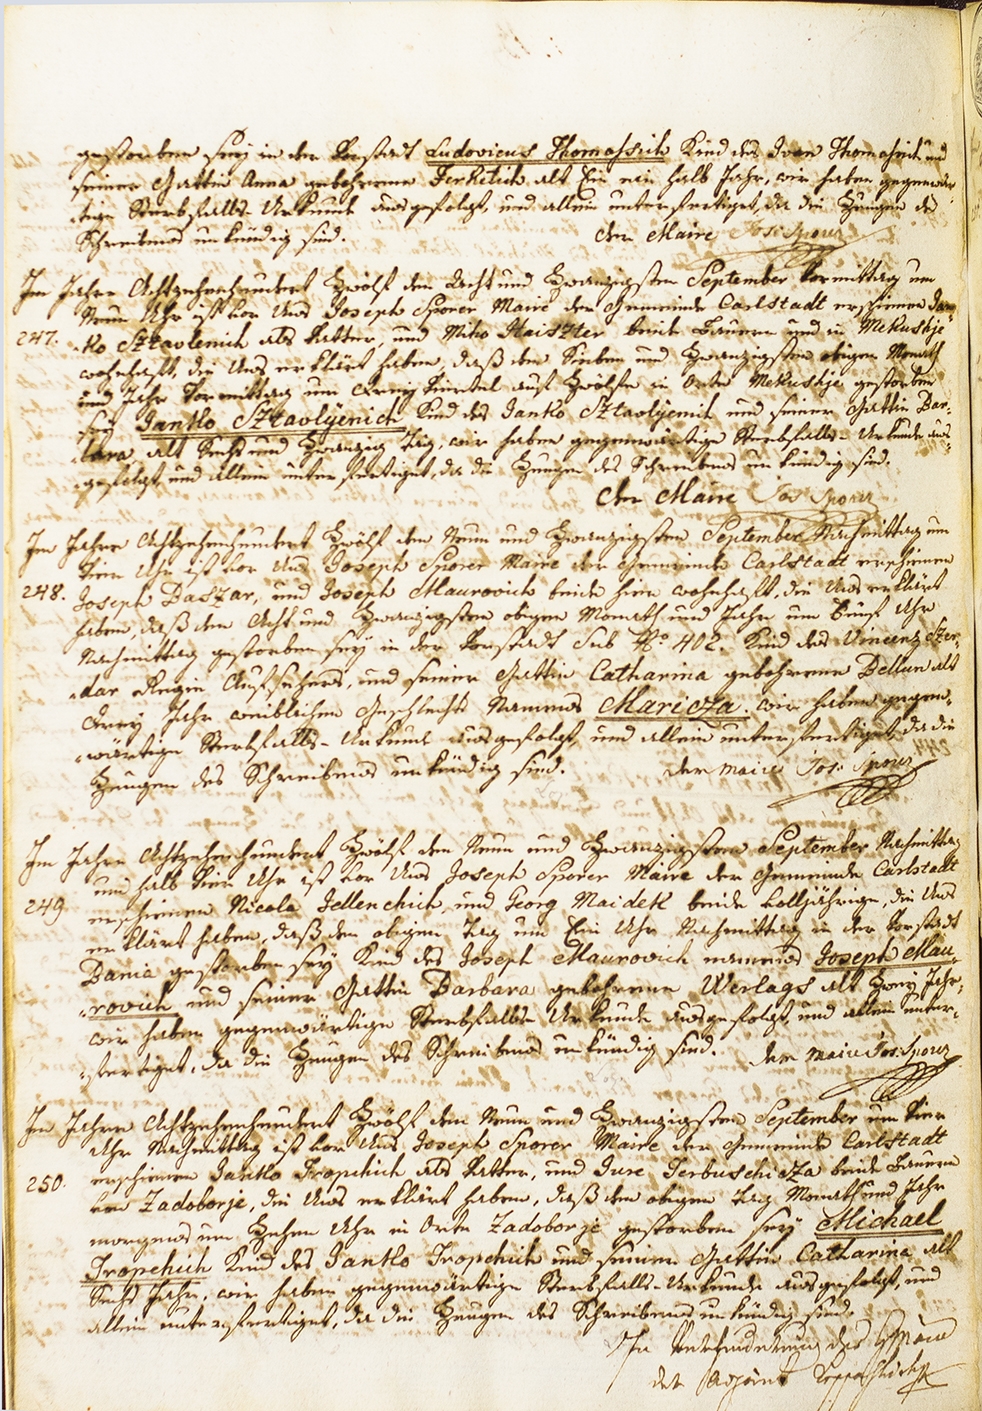 gestorben sey in der Vorstadt Ludovicus Thomassich Kind des Ivan Thomassich und
seiner Gattin Anna gebohrene Ferketich alt Ein ein halb Jahr, wir haben gegenwär-
tige Sterbfalls-Urkunde ausgefolgt, und allein unterfertiget, da die Zeugen des
Schreibens unkündig sind. Der Maire Jos: Sporer
Im Jahre Achtzehenhundert Zwölf den Acht und Zwanzigsten September Vormittag um
Neun Uhr ist vor Uns Joseph Sporer Maire der Gemeinde Carlstadt erschienen Jan-
247. ko Sztavlenich als Vatter, und Miko Haiszter beide Bauern und in Mekushje
wohnhaft, die Uns erklärt haben, daß den Sieben und Zwanzigsten obigen Monath
und Jahr Vormittag um Drey Viertel auf Zwölfe in Orte Mekushje gestorben
sey Janko Sztavlyenich Kind des Janko Sztavlyenich und seiner Gattin Bar-
bara alt Sechs und Zwanzig Tag, wir haben gegenwärtige Sterbfalls-Urkunde aus-
gefolgt, und allein unterfertiget, da die Zeugen des Schreibens unkündig sind.
Der Maire Jos: Sporer
Im Jahre Achtzehenhundert Zwölf den Neun und Zwanzigsten September Nachmittag um
Vier Uhr ist vor Uns Joseph Sporer Maire der Gemeinde Carlstadt erschienen
248. Joseph Baszar, und Joseph Maurovich beide hier wohnhaft, die Uns erklärt
haben, daß den Acht und Zwanzigsten obigen Monath und Jahr um Fünf Uhr
Nachmittag gestorben sey in der Vorstadt Sub No 402. Kind des Vincenz Szer-
dar Regie Aufsehers, und seiner Gattin Catharina gebohrene Bellun alt
Drey Jahr weiblichen Geschlechts Nammens Maricza. wir haben gegen-
wärtige Sterbfalls-Urkunde ausgefolgt, und allein unterfertiget, da die
Zeugen des Schreibens unkündig sind. der maire Jos: Sporer
Im Jahre Achtzehenhundert Zwölf den Neun und Zwanzigsten September Nachmittag
um halb Vier Uhr ist vor Uns Joseph Sporer Maire der Gemeinde Carlstadt
249. erschienen Nicola Jellenchich, und Georg Maidek beide volljährige, die Uns
erklärt haben, daß den obigen Tag um Ein Uhr Nachmittag in der Vorstadt
Bania gestorben sey Kind des Joseph Maurovich nammens Joseph Mau-
rovich und seiner Gattin Barbara gebohrene Werlags alt Zwey Jahr,
wir haben gegenwärtige Sterbfalls-Urkunde ausgefolgt, und allein unter-
fertiget, da die Zeugen des Schreibens unkündig sind. der maire Jos: Sporer
Im Jahre Achtzehenhundert Zwölf den Neun und Zwanzigsten September um Vier
Uhr Nachmittag ist vor Uns Joseph Sporer Maire der Gemeinde Carlstadt
250. erschienen Janko Tropchich als Vatter, und Jure Terbuschicza beide Bauern
von Zadoborje, die Uns erklärt haben, daß den obigen Tag Monath und Jahr
morgens um Zehen Uhr in Orte Zadoborje gestorben sey Michael
Tropchich Kind des Janko Tropchich und seiner Gattin Catharina alt
Sechs Jahr, wir haben gegenwärtige Sterbfalls-Urkunde ausgefolgt, und
allein unterfertiget, da die Zeugen des Schreibens unkündig sind.
In Verhinderung des Maire
der Adjoint